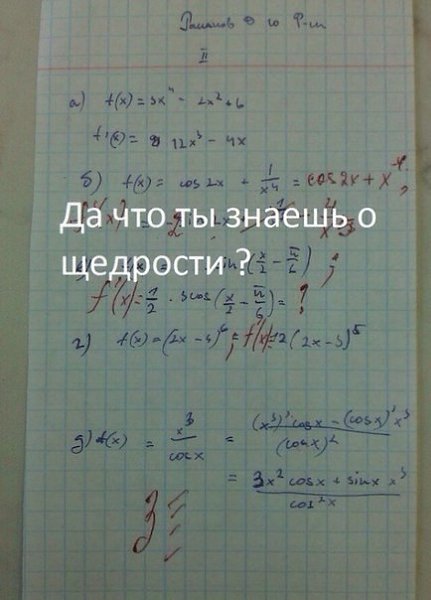 II
а) f(x) = 3x⁴ - 2x² + 6
f'(x) = 12x³ - 4x
б) f(x) = cos2x + 1/x⁴ = cos2x + x⁻⁴;
Да что ты знаешь о
щедрости ?
sin(x/2 - π/6);
f'(x) = 1/2 · 3cos(x/2 - π/6) = ?
г) f(x) = (2x-3)⁶; f'(x) = 12(2x-3)⁵
д) f(x) = x³/cosx = ((x³)'cosx - (cosx)'x³)/(cosx)²
= (3x²cosx + sinx x³)/cos²x
3